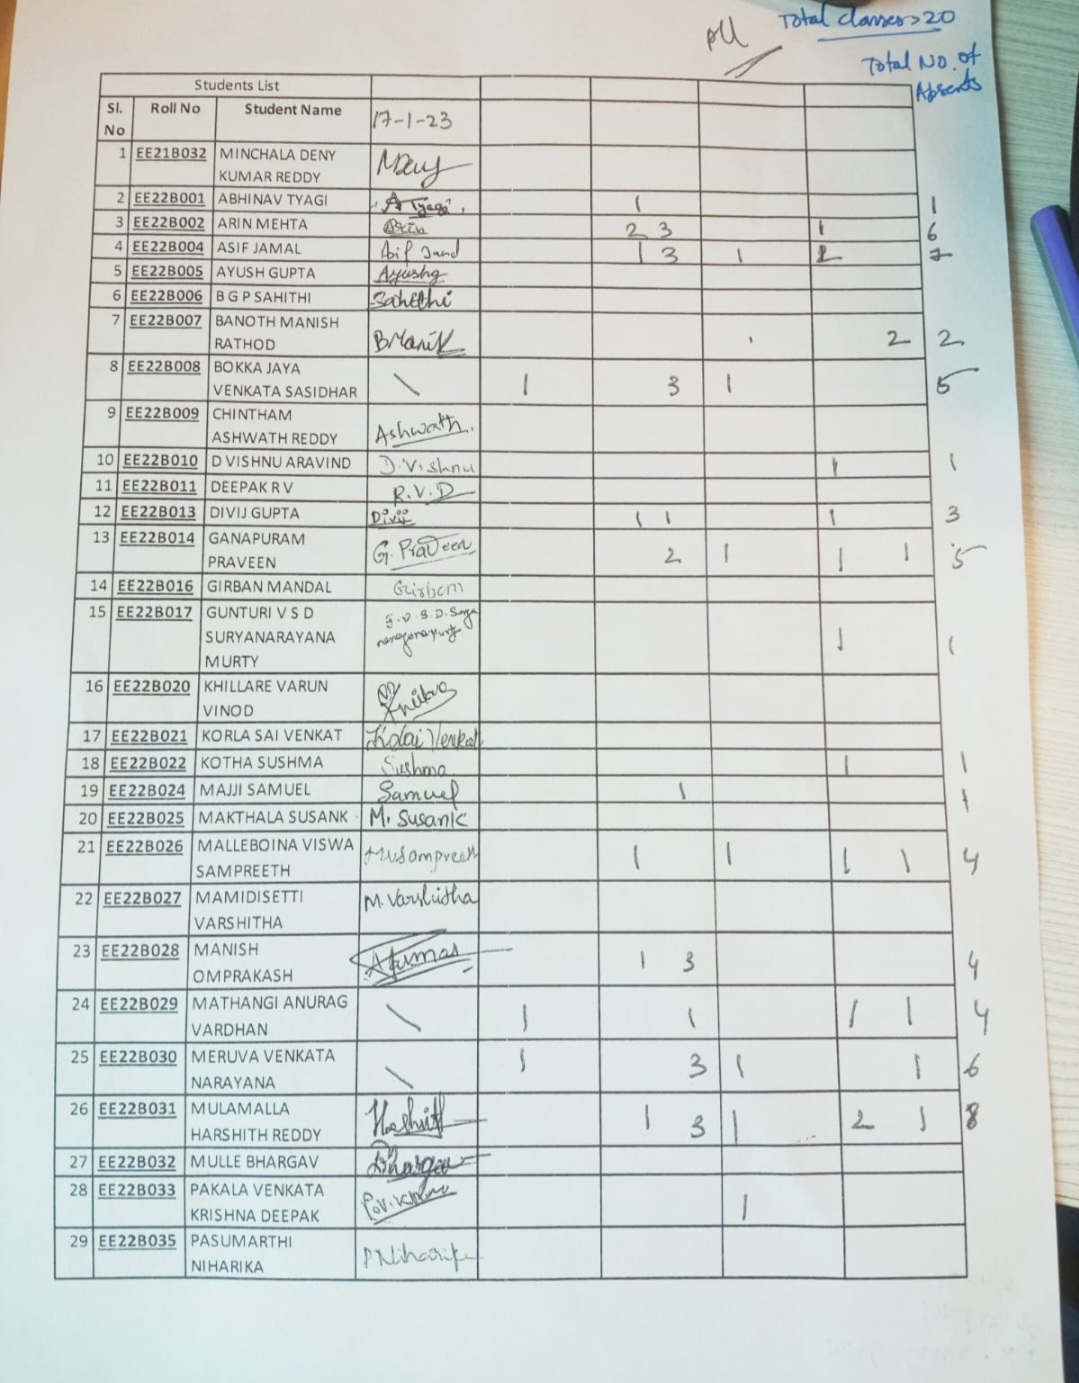 pll Total classes > 20
Total No. of
Absents
Students List
Sl. No Roll No Student Name 17-1-23
1 EE21B032 MINCHALA DENY
KUMAR REDDY
2 EE22B001 ABHINAV TYAGI A Tyagi 1 1
3 EE22B002 ARIN MEHTA Arin 2 3 1 6
4 EE22B004 ASIF JAMAL Asif Jamal 1 3 1 2 7
5 EE22B005 AYUSH GUPTA Ayushg
6 EE22B006 B G P SAHITHI Sahithi
7 EE22B007 BANOTH MANISH
RATHOD 2 2
8 EE22B008 BOKKA JAYA
VENKATA SASIDHAR \ 1 3 1 5
9 EE22B009 CHINTHAM
ASHWATH REDDY Ashwath.
10 EE22B010 D VISHNU ARAVIND D.Vishnu 1 1
11 EE22B011 DEEPAK R V R.V.D
12 EE22B013 DIVIJ GUPTA Divij 1 1 1 3
13 EE22B014 GANAPURAM
PRAVEEN G. Praveen 2 1 1 1 5
14 EE22B016 GIRBAN MANDAL Girban
15 EE22B017 GUNTURI V S D
SURYANARAYANA
MURTY 1 1
16 EE22B020 KHILLARE VARUN
VINOD
17 EE22B021 KORLA SAI VENKAT
18 EE22B022 KOTHA SUSHMA Sushma 1 1
19 EE22B024 MAJJI SAMUEL Samuel 1 1
20 EE22B025 MAKTHALA SUSANK M. Susank
21 EE22B026 MALLEBOINA VISWA
SAMPREETH MVSampreeth 1 1 1 1 4
22 EE22B027 MAMIDISETTI
VARSHITHA M.Varshitha
23 EE22B028 MANISH
OMPRAKASH 1 3 4
24 EE22B029 MATHANGI ANURAG
VARDHAN \ 1 1 1 1 4
25 EE22B030 MERUVA VENKATA
NARAYANA \ 1 3 1 1 6
26 EE22B031 MULAMALLA
HARSHITH REDDY Harshith 1 3 1 2 1 8
27 EE22B032 MULLE BHARGAV Bhargav
28 EE22B033 PAKALA VENKATA
KRISHNA DEEPAK 1
29 EE22B035 PASUMARTHI
NIHARIKA P Niharika